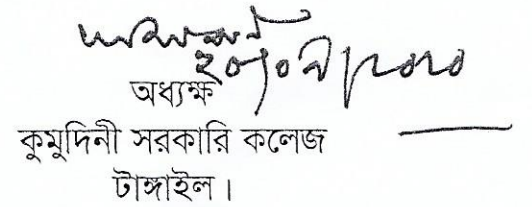 ২০/০৯/২০২০
অধ্যক্ষ
কুমুদিনী সরকারি কলেজ
টাঙ্গাইল।